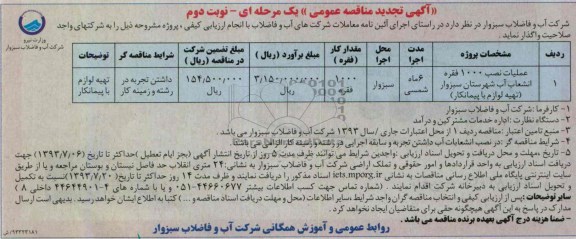 «آگهی تجدید مناقصه عمومی » یک مرحله ای - نوبت دوم
شرکت آب و فاضلاب سبزوار در نظر دارد در راستای اجرای آئین نامه معاملات شرکت های آب و فاضلاب با انجام ارزیابی کیفی ، پروژه مشروحه ذیل را به شرکتهای واجد
صلاحیت واگذار نماید .
وزارت نیرو
شرکت آب و فاضلاب سبزوار
ردیف
مشخصات پروژه
مدت اجرا
محل اجرا
مقدار کار (فقره )
مبلغ برآورد (ریال )
مبلغ تضمین شرکت در مناقصه (ریال )
شرایط مناقصه گر
توضیحات
۱
عملیات نصب ۱۰۰۰ فقره انشعاب آب شهرستان سبزوار (تهیه لوازم با پیمانکار)
۶ماه شمسی
سبزوار
۱۰۰۰ فقره
ریال
۱۵۴/۵۰۰/۰۰۰ ریال
داشتن تجربه در رشته و زمینه کار
تهیه لوازم با پیمانکار
۱- کارفرما :شرکت آب و فاضلاب سبزوار
۲- دستگاه نظارت :اداره خدمات مشترکین و درآمد
۳- منبع تامین اعتبار :مناقصه ردیف ۱ از محل اعتبارات جاری /سال ۱۳۹۳ شرکت آب و فاضلاب سبزوار می باشد .
۴- شرایط مناقصه گر :در نصب انشعابات آب داشتن تجربه و سابقه اجرایی در رشته و زمینه کار الزامی می باشد.
۵- تاریخ ، مهلت و محل دریافت و تحویل اسناد ارزیابی :واجدین شرایط می توانند ظرف مدت ۵ روز از تاریخ انتشار آگهی (بجز ایام تعطیل )حداکثر تا تاریخ (۱۳۹۳/۷/۰۶) جهت
دریافت اسناد ارزیابی به واحد قراردادها و امور حقوقی و تملک اراضی شرکت آب و فاضلاب سبزوار به نشانی:۲۴ متری انقلاب حد فاصل نیستان و بوستان مراجعه و یا از طریق
سایت اینترنتی پایگاه ملی اطلاع رسانی مناقصات به نشانی iets.mporg.ir اسناد مذکور را دریافت نمایند و ظرف مدت ۱۴ روز حداکثر تا تاریخ (۱۳۹۳/۷/۲۰)نسبت به تکمیل
و تحویل اسناد ارزیابی به دبیرخانه شرکت اقدام نمایند . (شماره تماس جهت کسب اطلاعات بیشتر ۴۴۶۶۰۶۷۷-۰۵۱ و یا با شماره های ۴-۴۴۶۴۴۹۰۱ داخلی ۸ )
سایر توضیحات :پس از ارزیابی کیفی و انتخاب مناقصه گران واجد شرایط ،سایر اطلاعات (محل و مهلت دریافت اسناد مناقصه و ... ) کتبا به اطلاع ایشان خواهد رسید. بدیهی است ارسال
مدارک در پاسخ به این آگهی هیچگونه حقی برای متقاضیان ایجاد نخواهد کرد.
- ضمنا هزینه درج آگهی بعهده برنده مناقصه می باشد .
روابط عمومی و آموزش همگانی شرکت آب و فاضلاب سبزوار